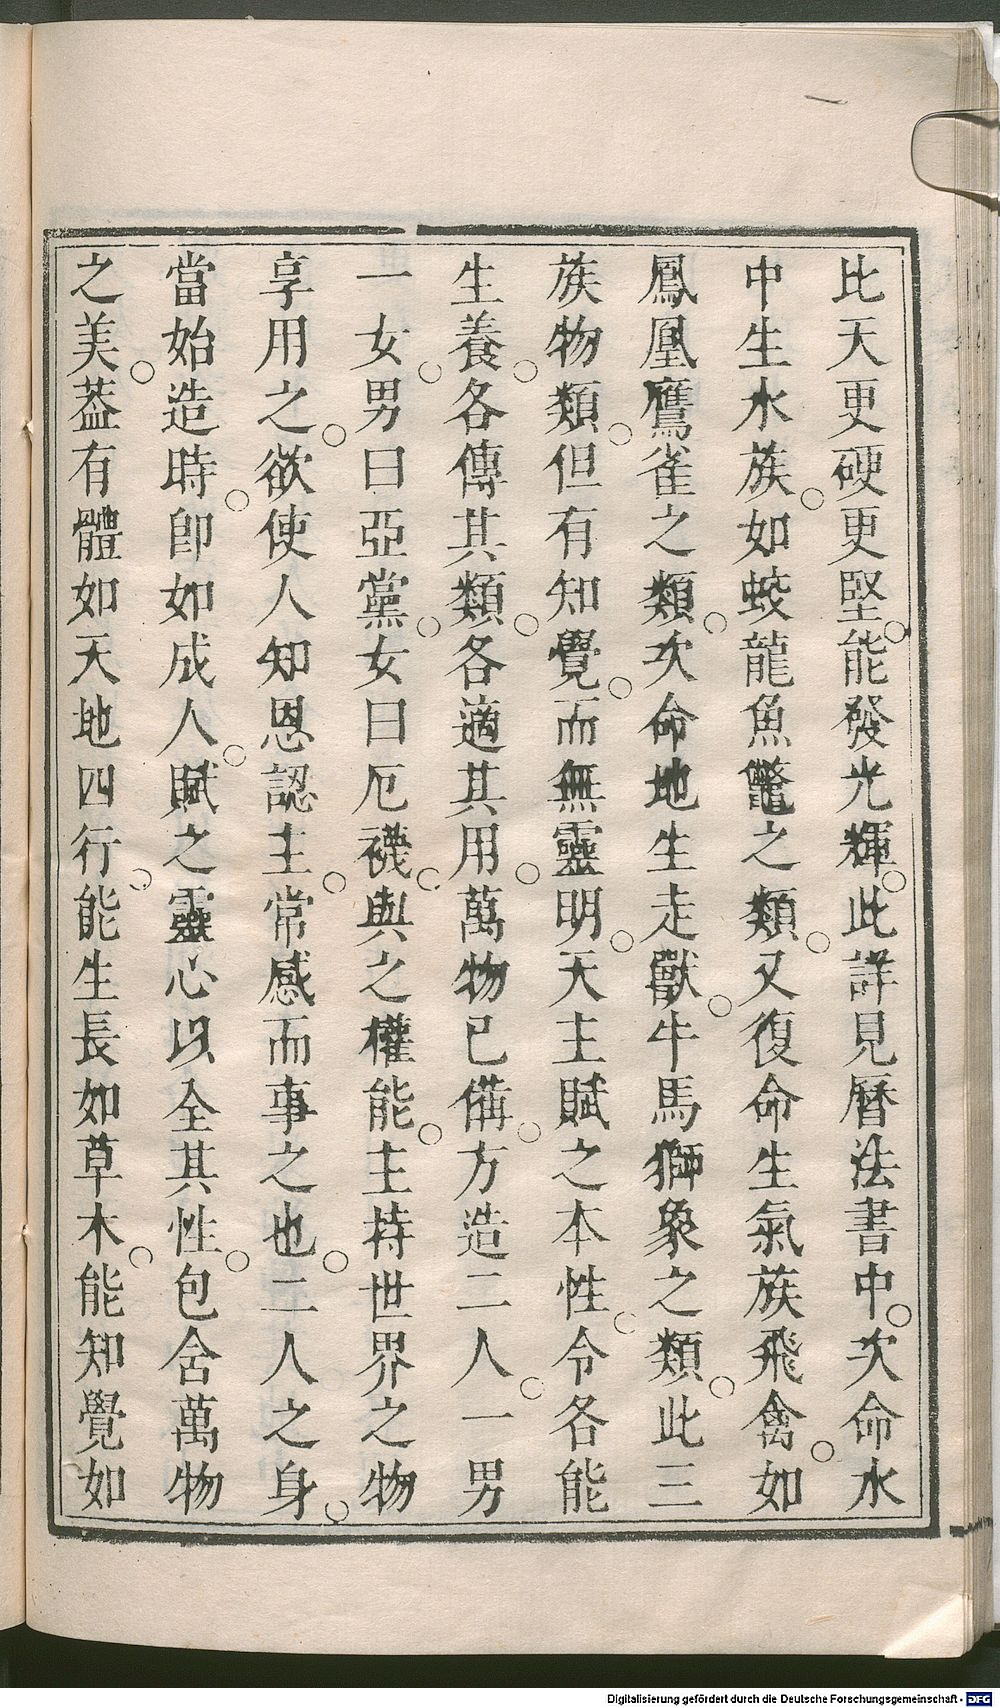 比天更硬更堅。能發光輝。此詳見曆法書中。次命水
中生水族。如蛟龍魚鼈之類。又復命生氣族飛禽。如
鳳凰鷹雀之類。次命地生走獸。牛馬獅象之類。此三
族物類。但有知覺。而無靈明。天主賦之本性。令各能
生養。各傳其類。各適其用。萬物已備。方造二人。一男
一女。男曰亞黨。女曰厄襪。與之權能。主持世界之物
享用之。欲使人知恩認主。常感而事之也。二人之身。
當始造時。卽如成人。賦之靈心以全其性。包含萬物
之美。葢有體如天地四行。能生長如草木。能知覺如
Digitalisierung gefördert durch die Deutsche Forschungsgemeinschaft - DFG